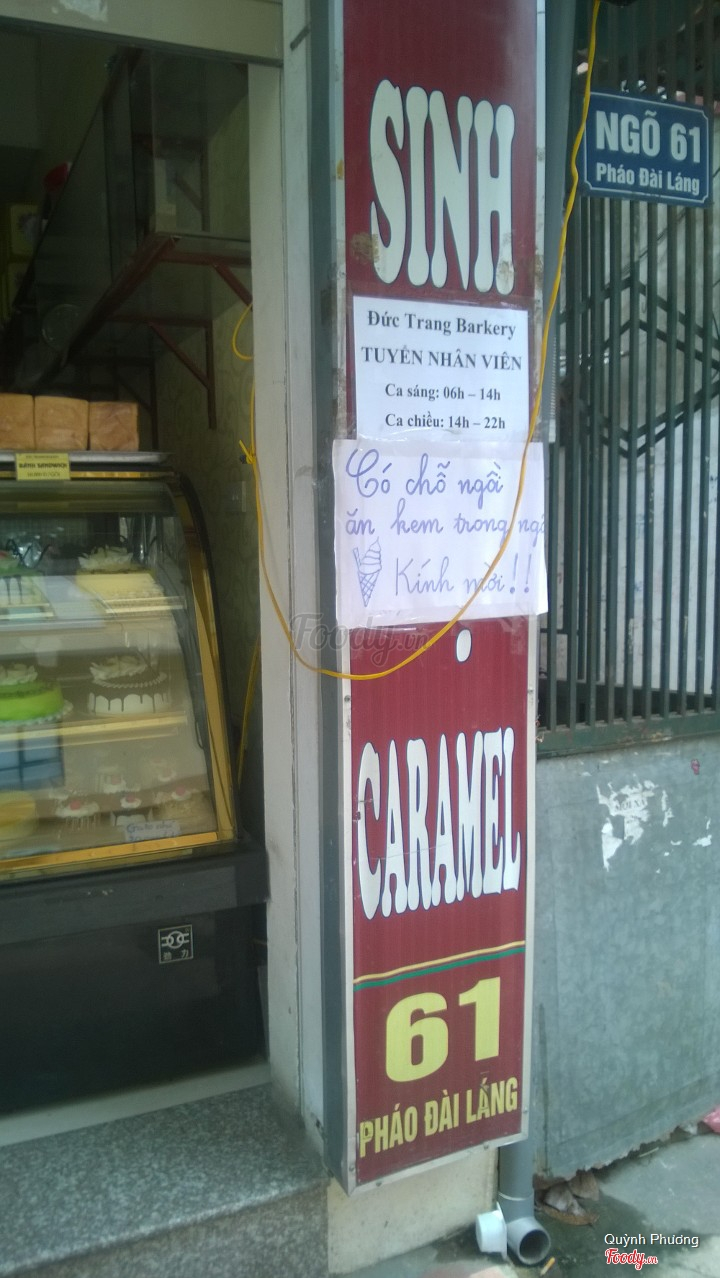 SINH
NGÕ 61
Pháo Đài Láng
Đức Trang Barkery
TUYỂN NHÂN VIÊN
Ca sáng: 06h – 14h
Ca chiều: 14h – 22h
Có chỗ ngồi
ăn kem trong ngõ
Kính mời!!
Foody.vn
CARAMEL
61
PHÁO ĐÀI LÁNG
Quỳnh Phương
Foody.vn